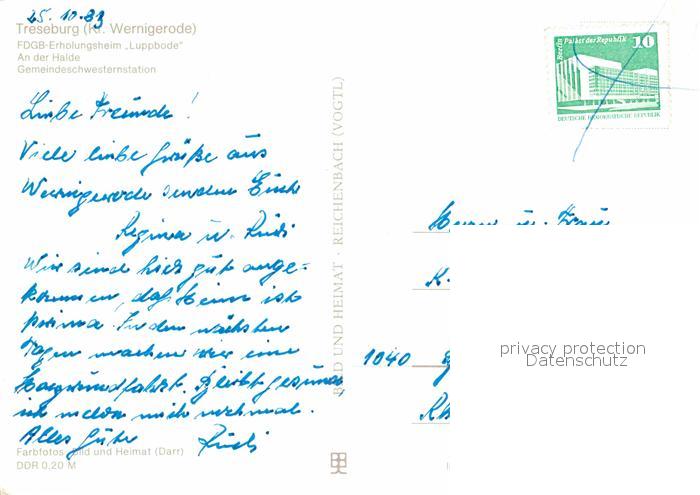 25.10.83
Treseburg (Kr. Wernigerode)
FDGB-Erholungsheim „Luppbode"
An der Halde
Gemeindeschwesternstation
Liebe Freunde!
Viele liebe Grüße aus
Wernigerode senden Euch
Regina u. Rudi
Wir sind hier gut ange=
kommen, das Heim ist
prima. In den nächsten
Tagen machen wir eine
Harzrundfahrt. Bleibt gesund,
ich melde mich nochmal.
Alles Gute Rudi
Farbfotos: Bild und Heimat (Darr)
DDR 0,20 M
BILD UND HEIMAT · REICHENBACH (VOGTL)
Berlin Palast der Republik 10
DEUTSCHE DEMOKRATISCHE REPUBLIK
Herrn u. Frau
K.
1040
privacy protection
Datenschutz